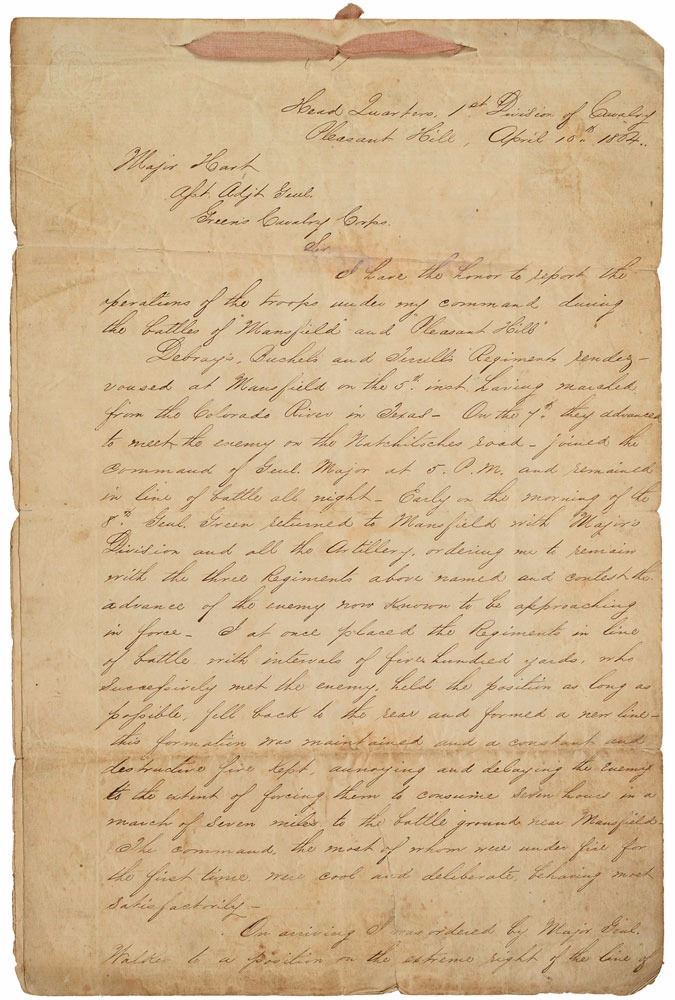 Head Quarters, 1st Division of Cavalry
Pleasant Hill, April 10th 1864.
Major Hart
Asst. Adjt Genl.
Green's Cavalry Corps.
Sir
I have the honor to report the
operations of the troops under my command during
the battles of "Mansfield" and "Pleasant Hill"
Debray's, Buchel's and Terrell's Regiments rendez-
voused at Mansfield on the 5th inst. having marched
from the Colorado River in Texas - On the 7th they advanced
to meet the enemy on the Natchitoches road - joined the
command of Genl. Major at 5. P.M. and remained
in line of battle all night - Early on the morning of the
8th Genl. Green returned to Mansfield with Major's
Division and all the Artillery, ordering me to remain
with the three Regiments above named and contest the
advance of the enemy now known to be approaching
in force - I at once placed the Regiments in line
of battle with intervals of five hundred yards, who
successively met the enemy, held the position as long as
possible, fell back to the rear and formed a new line -
this formation was maintained and a constant and
destructive fire kept, annoying and delaying the enemy
to the extent of forcing them to consume seven hours in a
march of seven miles to the battle ground near Mansfield -
The command, the most of whom were under fire for
the first time, were cool and deliberate, behaving most
satisfactorily -
On arriving I was ordered by Major Genl.
Walker to a position on the extreme right of the line of